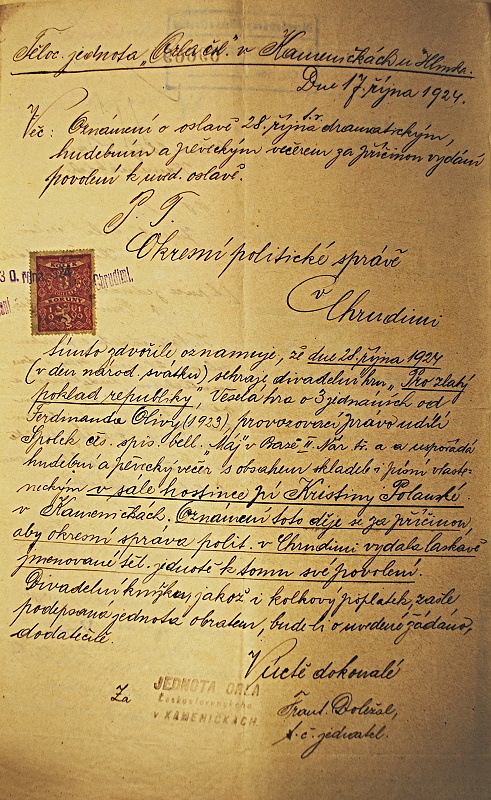 Těloc. jednota „Orla čsl." v Kameničkách u Hlinska.
Dne 17 října 1924.
Věc: Oznámení o oslavě 28. října t.r. dramatickým,
hudebním a pěveckým večerem za příčinou vydání
povolení k uved. oslavě.
P. T.
Okresní politické správě
v Chrudimi
30. října 24 Chrudimi.
KORUNY
tímto zdvořile oznamuje, že dne 28. října 1924
(v den národ. svátku) sehraje divadelní hru „Pro zlatý
poklad republiky" Veselá hra o 3 jednáních od
Ferdinanda Olivy (1923), provozovací právo udílí
Spolek čes. spis. bell. „Máj" v Praze II. Nár. tř. a uspořádá
hudební a pěvecký večer s obsahem skladeb i písní vlaste-
neckým v sále hostince pí Kristiny Polanské
v Kameničkách. Oznámení toto děje se za příčinou,
aby okresní správa polit. v Chrudimi vydala laskavě
jmenované těl. jednotě k tomu své povolení.
Divadelní knížku, jakož i kolkový poplatek, zašle
podepsaná jednota obratem, bude-li o uvedené žádáno,
dodatečně.
V úctě dokonalé
Za JEDNOTA ORLA
Československého
v KAMENIČKÁCH.
Frant. Doležal,
t. č. jednatel.